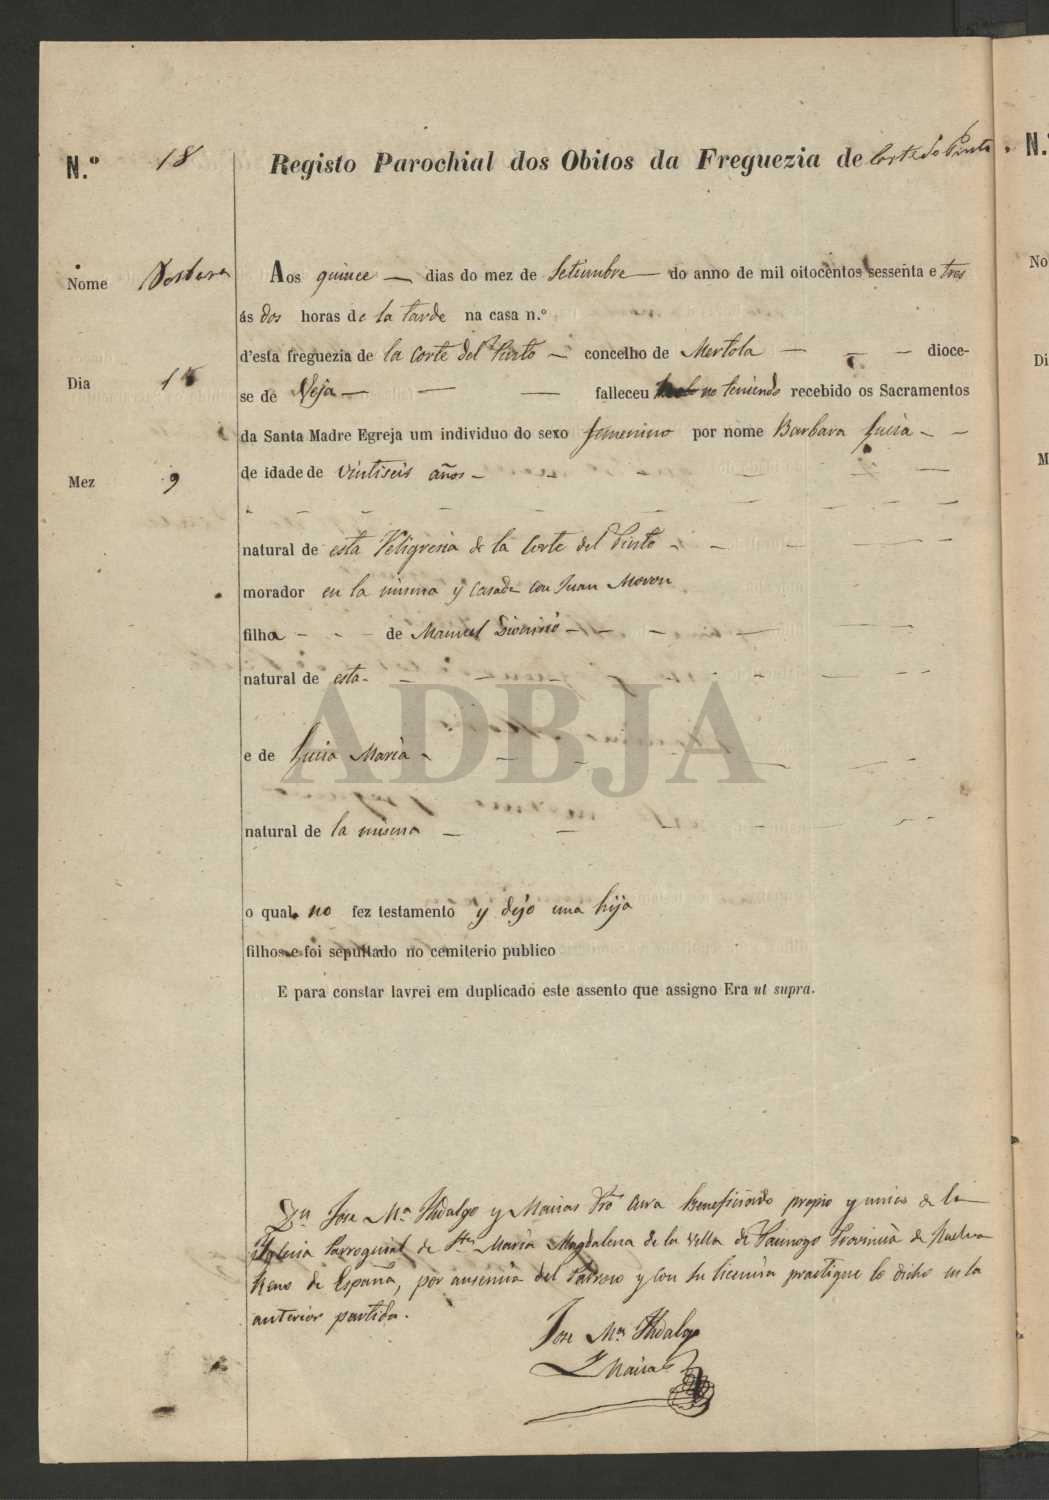 N.º 18 Registo Parochial dos Obitos da Freguezia de Corte do Pinto
N.
Nome Barbara Aos quince dias do mez de Setiembre do anno de mil oitocentos sessenta e tres
No
ás dos horas de la tarde na casa n.º
d'esta freguezia de la Corte del Pinto concelho de Mertola dioce-
Di
Dia 15 se de Veja falleceu no teniendo recebido os Sacramentos
da Santa Madre Egreja um individuo do sexo femenino por nome Barbara Lucia
M
Mez 9 de idade de vintiseis años
natural de esta Feligresia de la Corte del Pinto
morador en la misma y casada con Juan Moron
filha de Manuel Dionisio
natural de esta
ADBJA
e de Lucia Maria
natural de la misma
o qual no fez testamento y dejo una hija
filhos e foi sepultado no cemiterio publico
E para constar lavrei em duplicado este assento que assigno Era ut supra.
Dn Jose Mª Hidalgo y Macias Pro Cura Beneficiado propio y unico de la
Yglesia Parroquial de Sta Maria Magdalena de la Villa de Paimogo Provincia de Huelva
Reno de España, por ausencia del Parroco y con su licencia practique lo dicho en la
anterior partida.
Jose Mª Hidalgo
Y Macias